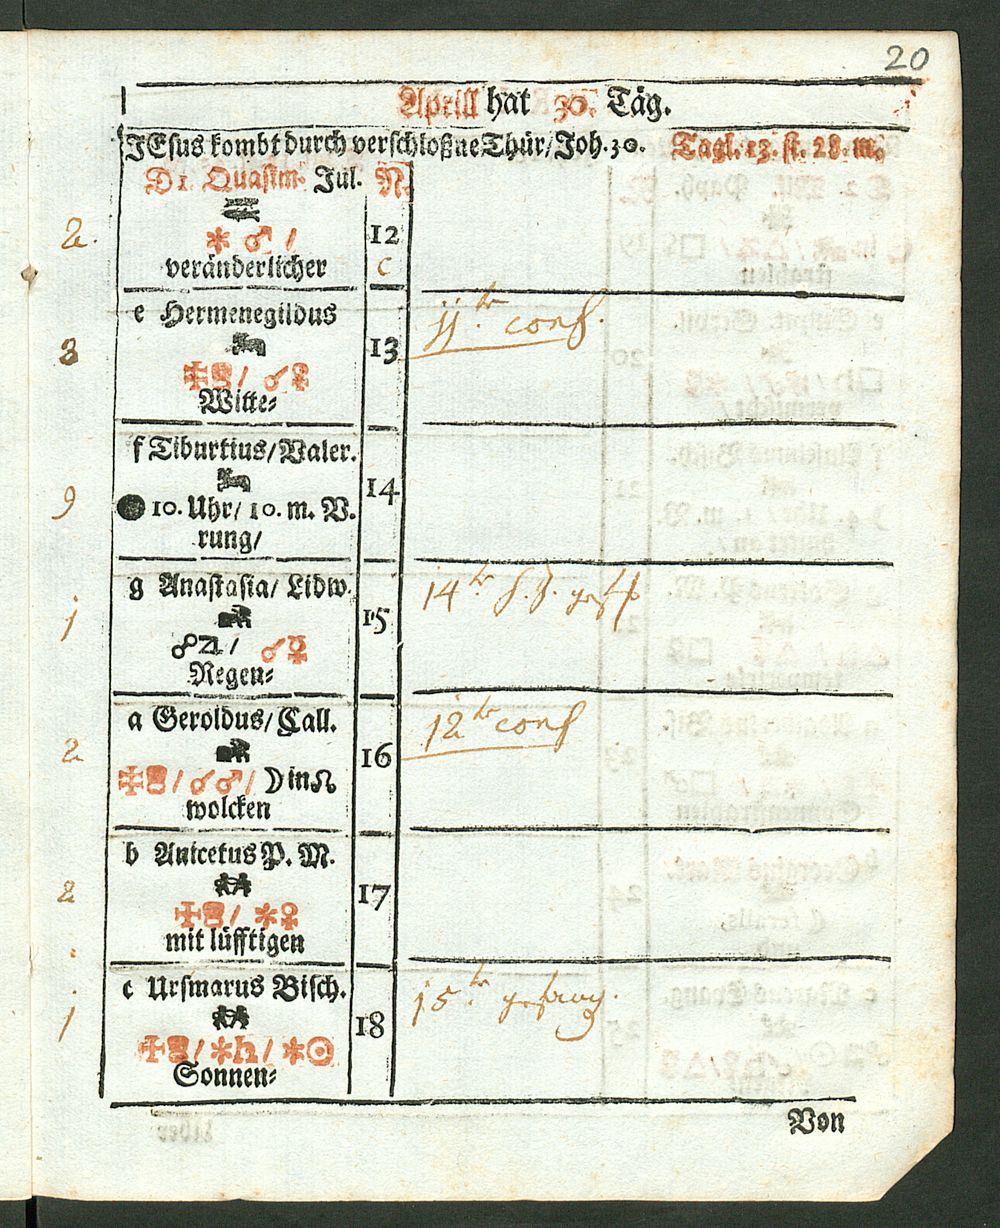 20
Aprill hat 30. Täg.
JEsus kombt durch verschloßne Thür/ Joh. 30. Tagl. 13. st. 28. m.
D 1. Quasim. Jul. N.
2. ⚹ ♂ / 12
veränderlicher c
e Hermenegildus 11.tr conf.
3 13
/ ☌♀
Witte-
f Tiburtius/ Valer.
9 14
● 10. Uhr/ 10. m. V.
rung/
g Anastasia/ Lidw. 14tr
1 15
☍♃/ ☌☿
Regen-
a Geroldus/ Call. 12tr conf
2 16
/ ☌♂/ ☽ in ☊
wolcken
b Anicetus P. M.
2 17
/ ⚹♀
mit lüfftigen
c Ursmarus Bisch. 15.tr
1 18
/⚹♄/ ⚹☉
Sonnen-
Von